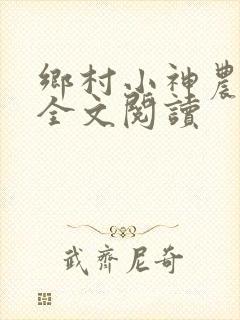 鄉村小神農
全文閱讀
武齊尼奇